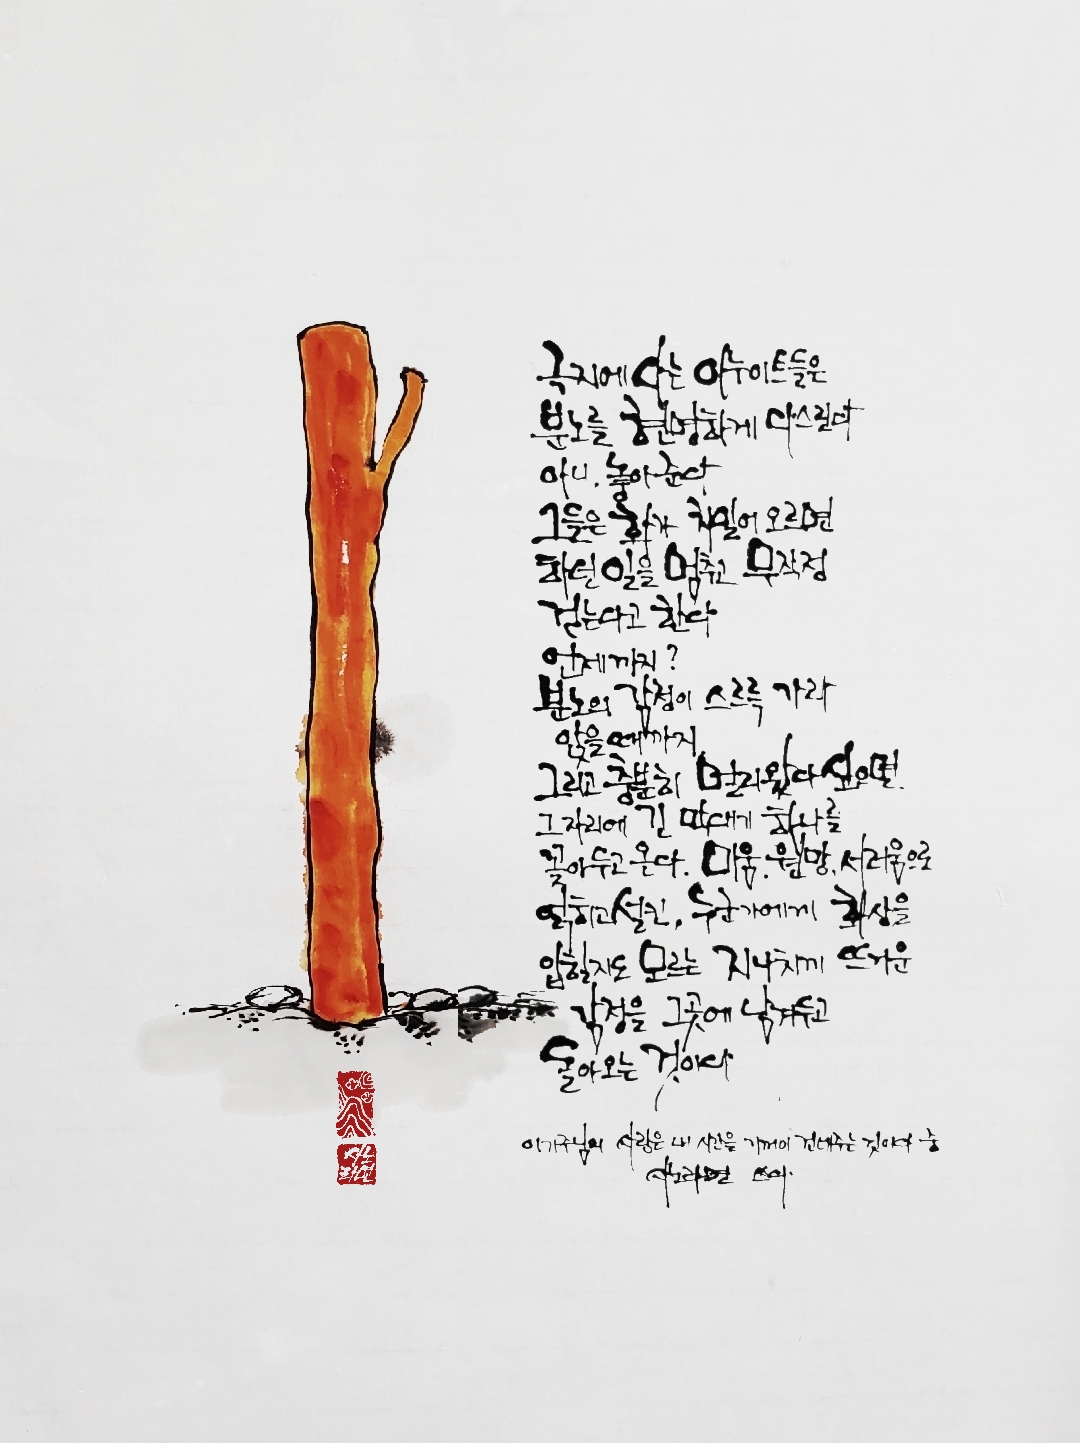 극지에 사는 이누이트들은
분노를 현명하게 다스린다
아니, 놓아준다
그들은 화가 치밀어 오르면
하던 일을 멈추고 무작정
걷는다고 한다
언제까지?
분노의 감정이 스르륵 가라
앉을때까지
그리고 충분히 멀리왔다 싶으면.
그자리에 긴 막대기 하나를
꽂아두고 온다. 미움.원망.서러움으로
얽히고설킨, 누군가에게 화상을
입힐지도 모르는 지나치게 뜨거운
감정을 그곳에 남겨두고
돌아오는 것이다
이기주님의 사랑은 내 시간을 기꺼이 건네주는 것이다 중
쓰다.